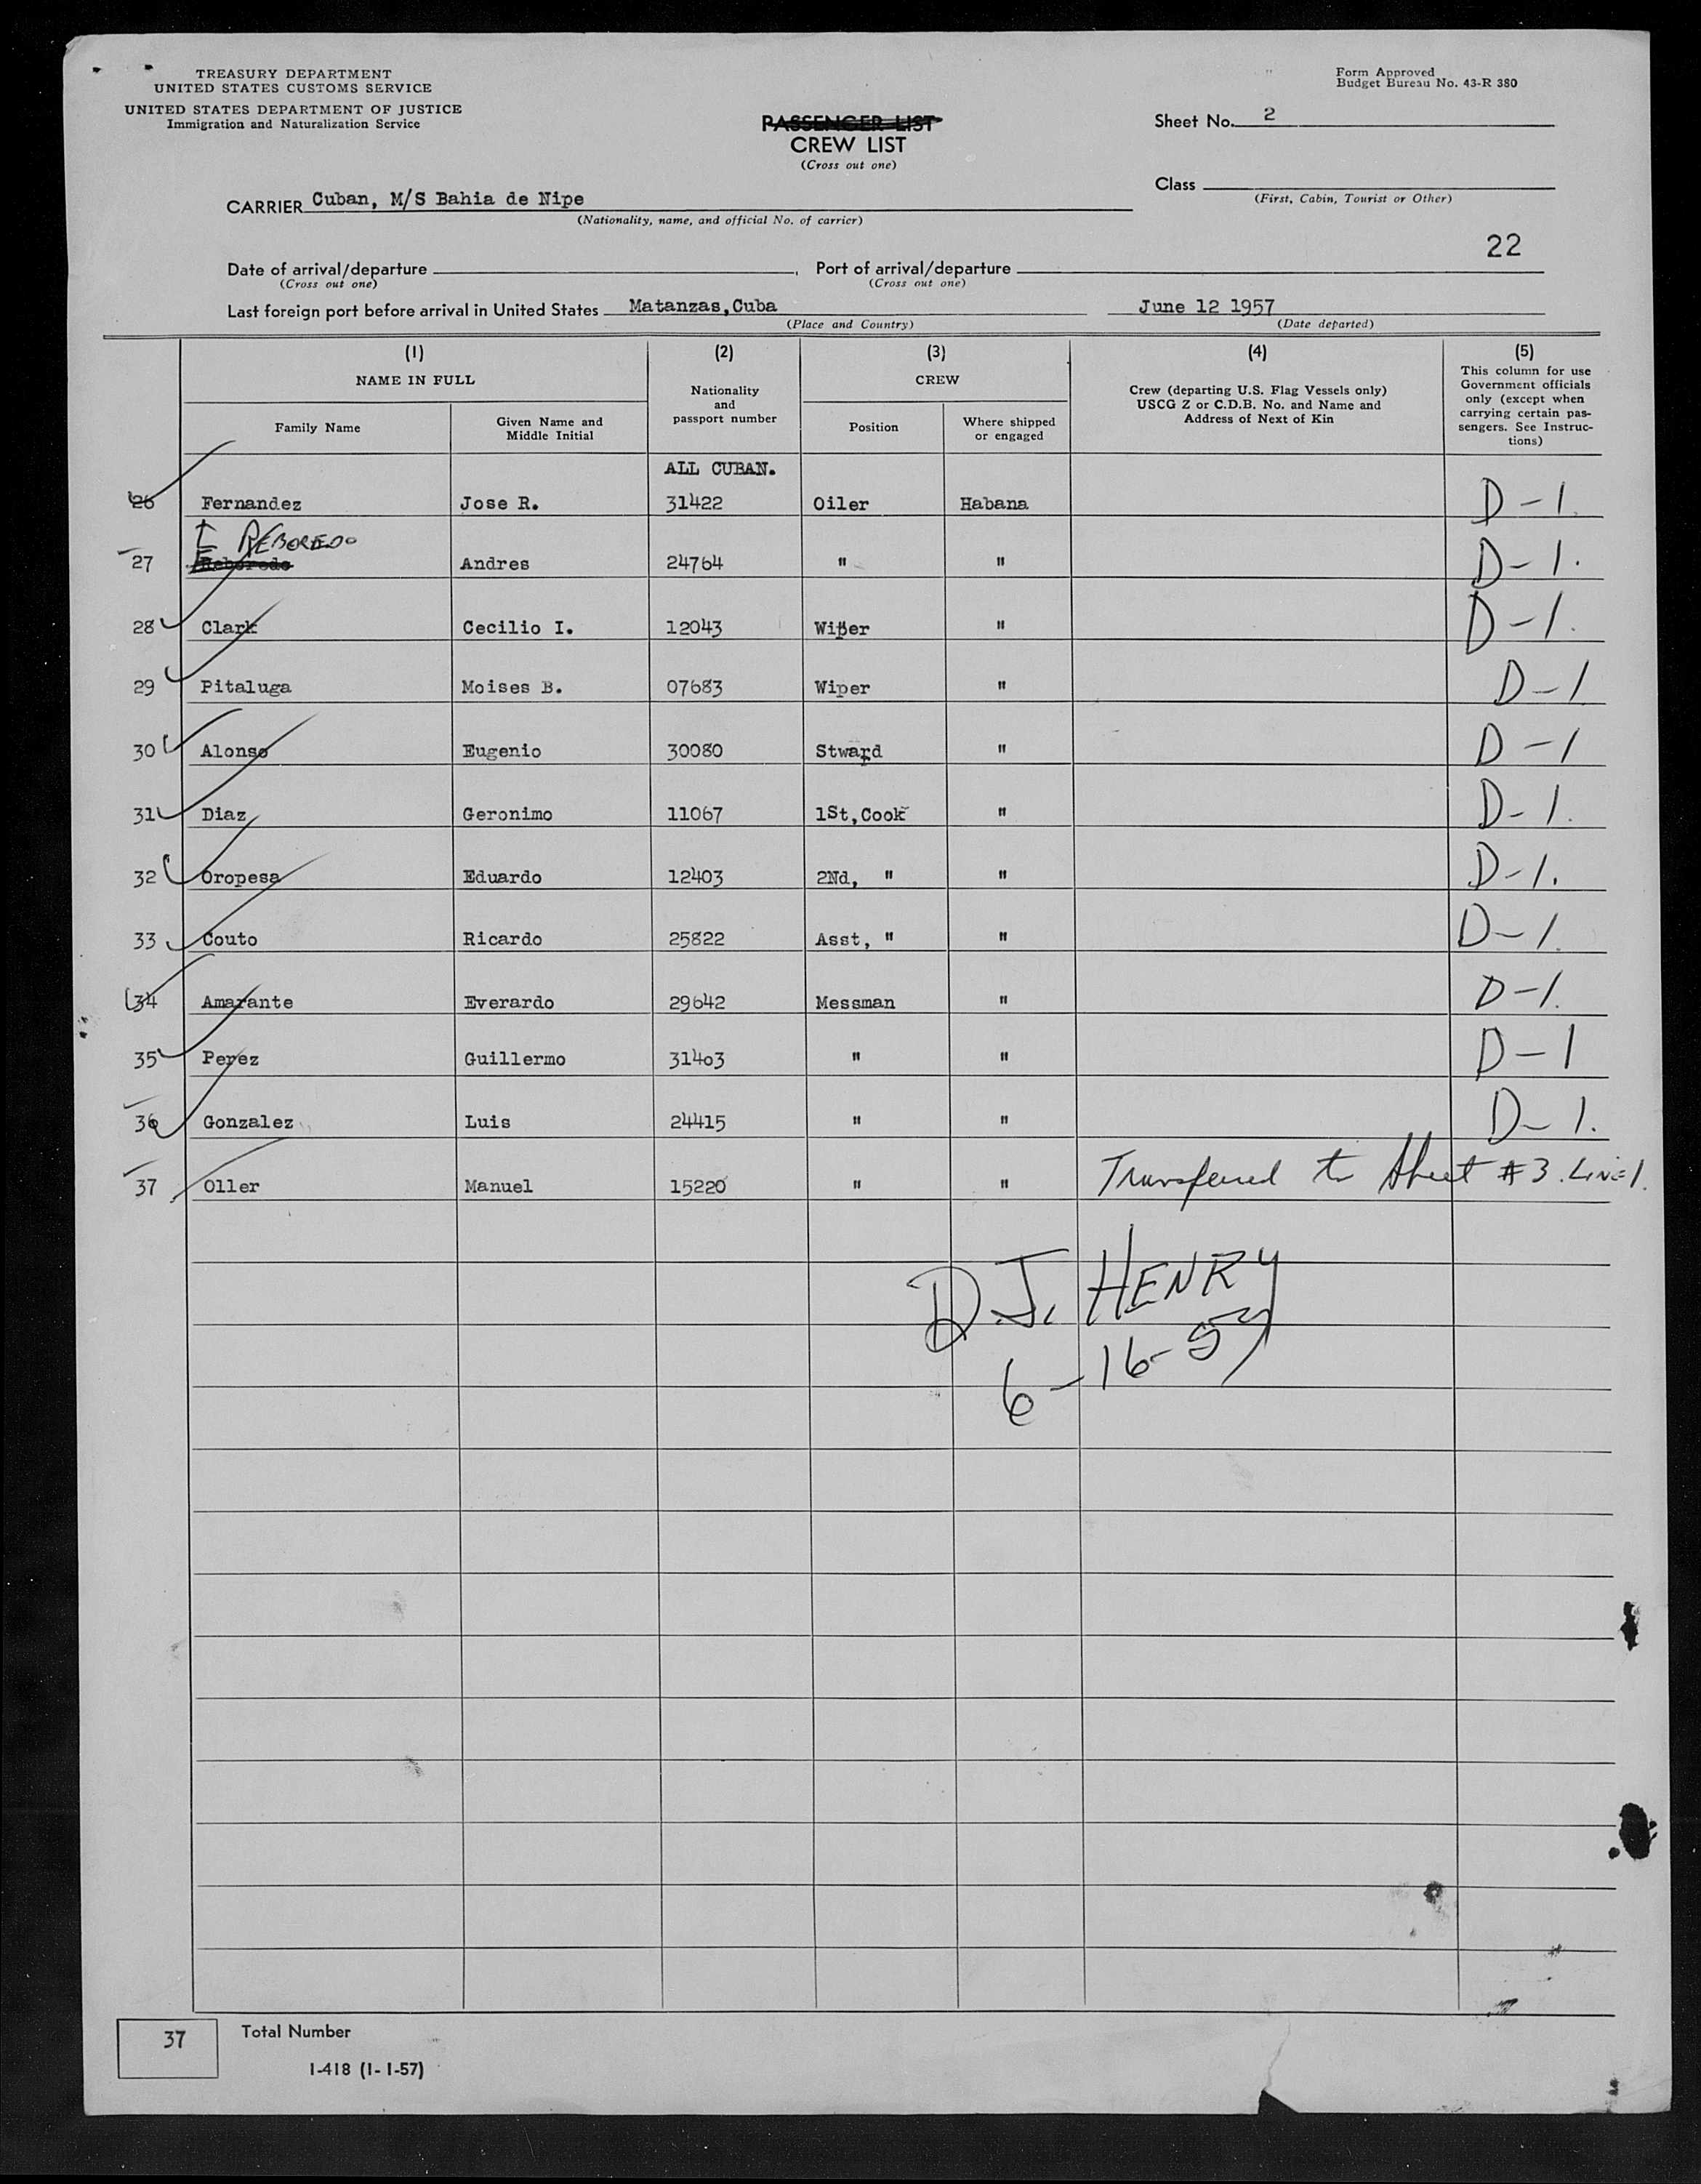 TREASURY DEPARTMENT
UNITED STATES CUSTOMS SERVICE
UNITED STATES DEPARTMENT OF JUSTICE
Immigration and Naturalization Service
Form Approved
Budget Bureau No. 43-R 380
PASSENGER LIST
CREW LIST
(Cross out one)
Sheet No. 2
Class
(First, Cabin, Tourist or Other)
CARRIER Cuban, M/S Bahia de Nipe
(Nationality, name, and official No. of carrier)
22
Date of arrival/departure , Port of arrival/departure
(Cross out one) (Cross out one)
Last foreign port before arrival in United States Matanzas,Cuba June 12 1957
(Place and Country) (Date departed)
(1) (2) (3) (4) (5)
NAME IN FULL
Family Name
Given Name and Middle Initial
Nationality and passport number
CREW
Position
Where shipped or engaged
Crew (departing U.S. Flag Vessels only)
USCG Z or C.D.B. No. and Name and
Address of Next of Kin
This column for use
Government officials
only (except when
carrying certain pas-
sengers. See Instruc-
tions)
ALL CUBAN.
26 Fernandez Jose R. 31422 Oiler Habana D-1.
REBOREDO
27 Reboredo Andres 24764 " " D-1.
28 Clark Cecilio I. 12043 Wiper " D-1.
29 Pitaluga Moises B. 07683 Wiper " D-1
30 Alonso Eugenio 30080 Stward " D-1
31 Diaz Geronimo 11067 1St,Cook " D-1.
32 Oropesa Eduardo 12403 2Nd, " " D-1.
33 Couto Ricardo 25822 Asst, " " D-1.
34 Amarante Everardo 29642 Messman " D-1.
35 Perez Guillermo 31403 " " D-1
36 Gonzalez Luis 24415 " " D-1.
37 Oller Manuel 15220 " " Transferred to Sheet #3. Line 1.
D.J. HENRY
6-16-57
37 Total Number
I-418 (1-1-57)